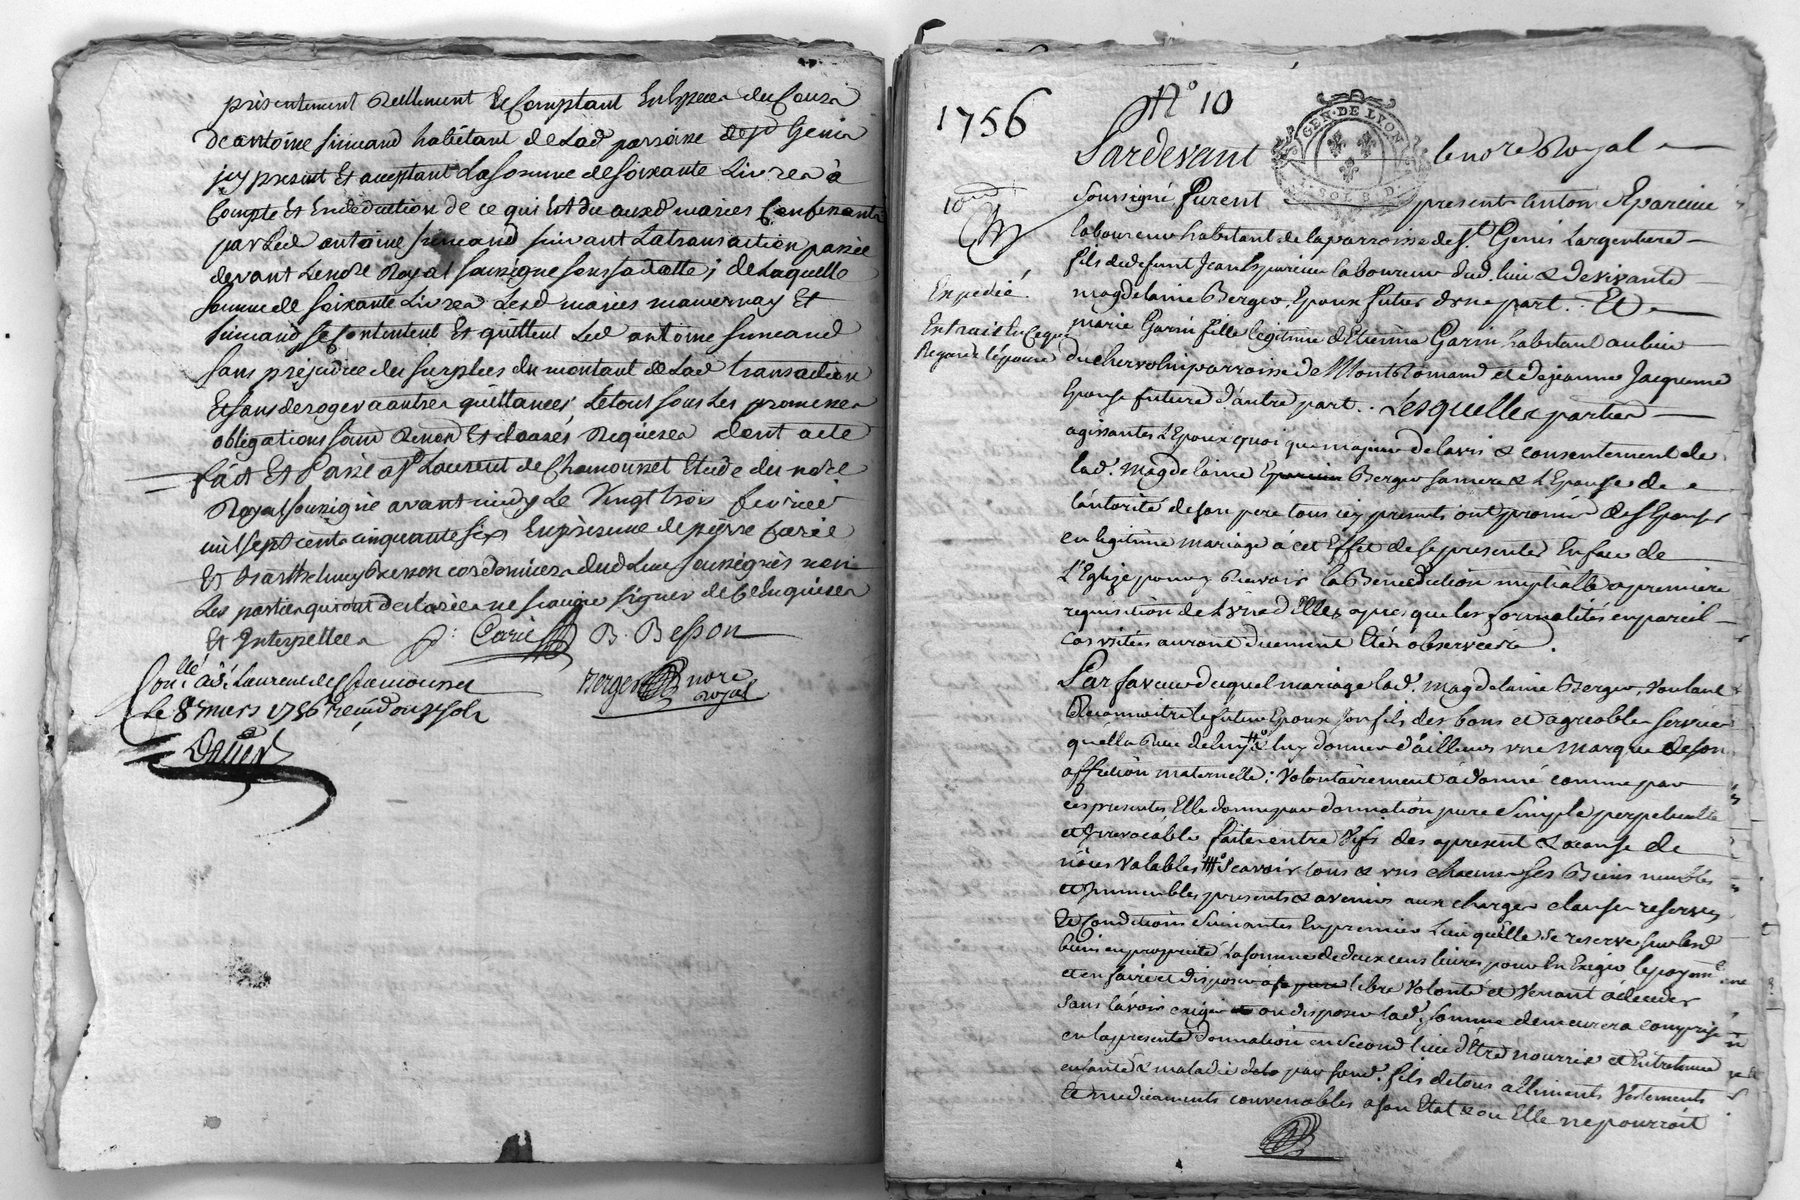 présentement réellement et comptant en espece du cours
de antoine simeand habitant de lad parroisse de st Genis
icy present et acceptant la somme de soixante Livres à
compte et en déduction de ce qui est du auxd maries
par led antoine simeand suivant la transaction passée
devant le nore Royal soussigné sous sa datte; de laquelle
somme de soixante Livres lesd maries mauvernay Et
simeand se contentent et quittent led antoine simeand
sans préjudice du surplus du montant de lad transaction
Et sans deroger a autres quittances, le tout sous les promesses
obligations soum renon et clauses Requises dont acte
fait et Passé a st Laurent de Chamousset Etude du nore
Royal soussigné avant midy le Vingt trois fevrier
mil sept cents cinquante six En présence de pierre Carié
Et Barthelmy Besson cordonniers dud lieu soussignés non
les parties qui ont declarées ne scavoir signer de ce enquises
Et Interpellées P: Carié B. Besson
Conllé à st Laurent de Chamousset Berger nore
le 8 mars 1756 royal
1756 No 10
GEN. DE LYON
Pardevant le nore Royal
10
soussigné furent present anton Eparcieu
laboureur habitant de la parroisse de St Genis Largentiere
fils de defunt Jean Eparcieu laboureur dud. lieu & de vivante
Expedié.
magdelaine Berger, Epoux futur d'une part. Et
Extrait En ce qui
marie Garin fille legitime d'Etienne Garin habitant au lieu
Regarde l'épouse
du chervolin parroisse de Montromand et de jeanne Jacqueme
Epouse future d'autre part. Lesquelles parties
agissantes L'Epoux quoi que majeur de lavis & consentement de
lad. Magdelaine Berger sa mere & l'Epouse de
l'autorité de son pere tous icy presents ont promis de s'Epouser
en legitime mariage à cet Effet de se presenter En face de
L'Eglize pour y Recevoir la Benediction nuptialle a premiere
requisition de L'un d'Elles, apres que les formalités en pareil
cas usitées auront duement Eté observées.
En faveur duquel mariage lad. Magdelaine Berger, Voulant
Reconnoitre le futur Epoux son fils des bons et agreables services
quella Reçu de luy & luy donner d'ailleurs une marque de son
affection maternelle; Volontairement à donné comme par
ces presentes Elle donne par donnation pure simple perpetuelle
et Irrevocable faite entre Vifs des apresent & acause de
nôces valables Scavoir tous & uns chacuns ses Biens meubles
et Immeubles presents & avenirs aux charges clauses reserves
& conditions suivantes En premier lieu qu'elle se reserve sur lesd
biens en proprieté la somme de deux cens livres pour En Exiger le payemt
et en faire et disposer a sa libre Volonté et Venant à deceder
sans l'avoir exigée ou disposer lad. somme demeurera comprise
en la presente donnation en second lieu d'être nourrie et Entretenue
en santé & maladie par sond. fils de tous alliments Vestements
Et medicaments convenables a son Etat & ou Elle ne pourroit